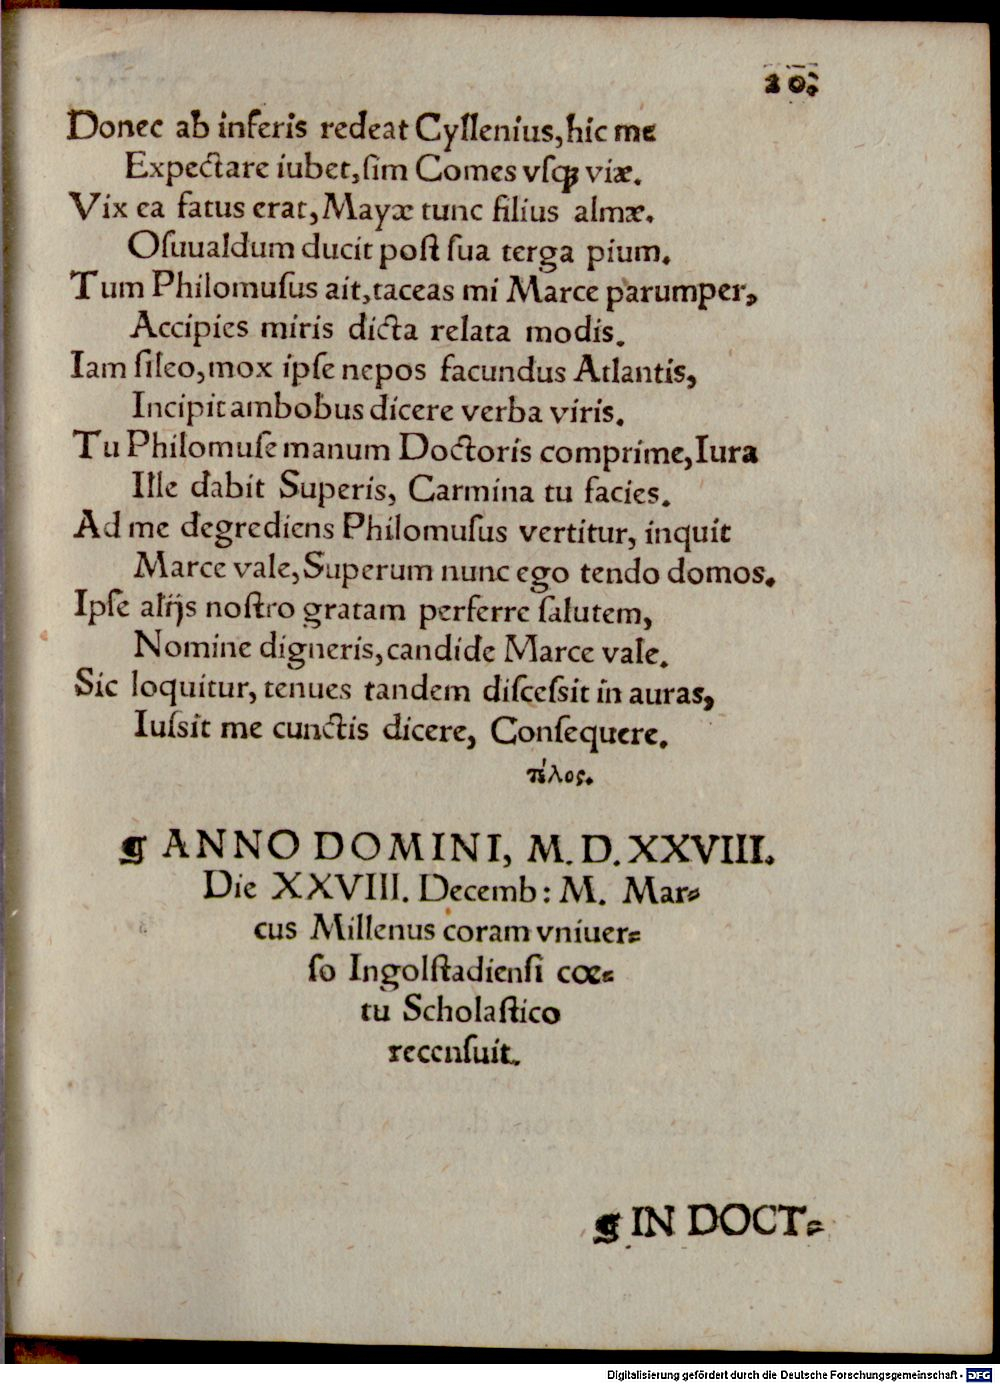 20.
Donec ab inferis redeat Cyllenius, hic me
Expectare iubet, ſim Comes vſqꝫ viæ.
Vix ea fatus erat, Mayæ tunc filius almæ.
Oſuualdum ducit poſt ſua terga pium.
Tum Philomuſus ait, taceas mi Marce parumper,
Accipies miris dicta relata modis.
Iam ſileo, mox ipſe nepos facundus Atlantis,
Incipit ambobus dicere verba viris.
Tu Philomuſe manum Doctoris comprime, Iura
Ille dabit Superis, Carmina tu facies.
Ad me degrediens Philomuſus vertitur, inquit
Marce vale, Superum nunc ego tendo domos.
Ipſe alijs noſtro gratam perferre ſalutem,
Nomine digneris, candide Marce vale.
Sic loquitur, tenues tandem diſceſsit in auras,
Iuſsit me cunctis dicere, Conſequere.
τέλος.
¶ ANNO DOMINI, M. D. XXVIII.
Die XXVIII. Decemb: M. Mar⸗
cus Millenus coram vniuer⸗
ſo Ingolſtadienſi cœ⸗
tu Scholaſtico
recenſuit.
¶ IN DOCT⸗
Digitalisierung gefördert durch die Deutsche Forschungsgemeinschaft - DFG